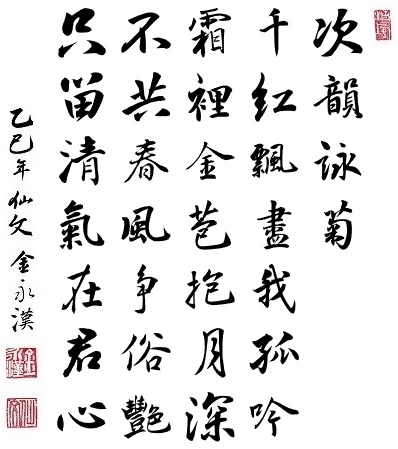 次韻詠菊
千紅飄盡我孤吟
霜裡金苞抱月深
不共春風爭俗艷
只留清氣在君心
乙巳年 仙文 金永漢